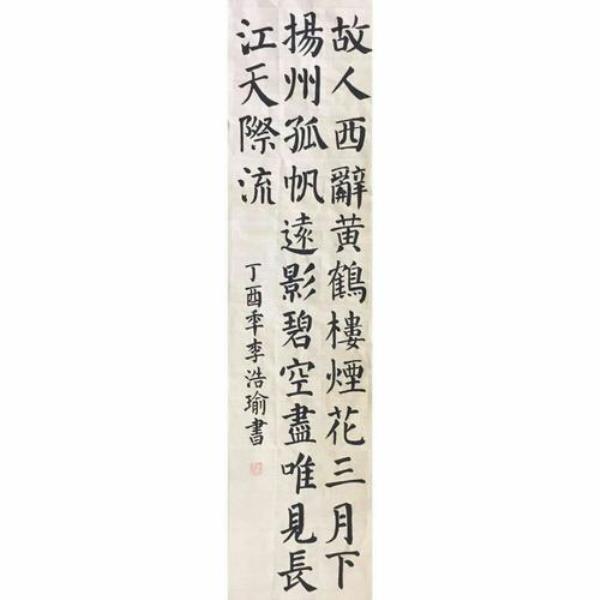 故人西辭黃鶴樓煙花三月下
揚州孤帆遠影碧空盡唯見長
江天際流
丁酉年李浩瑜書